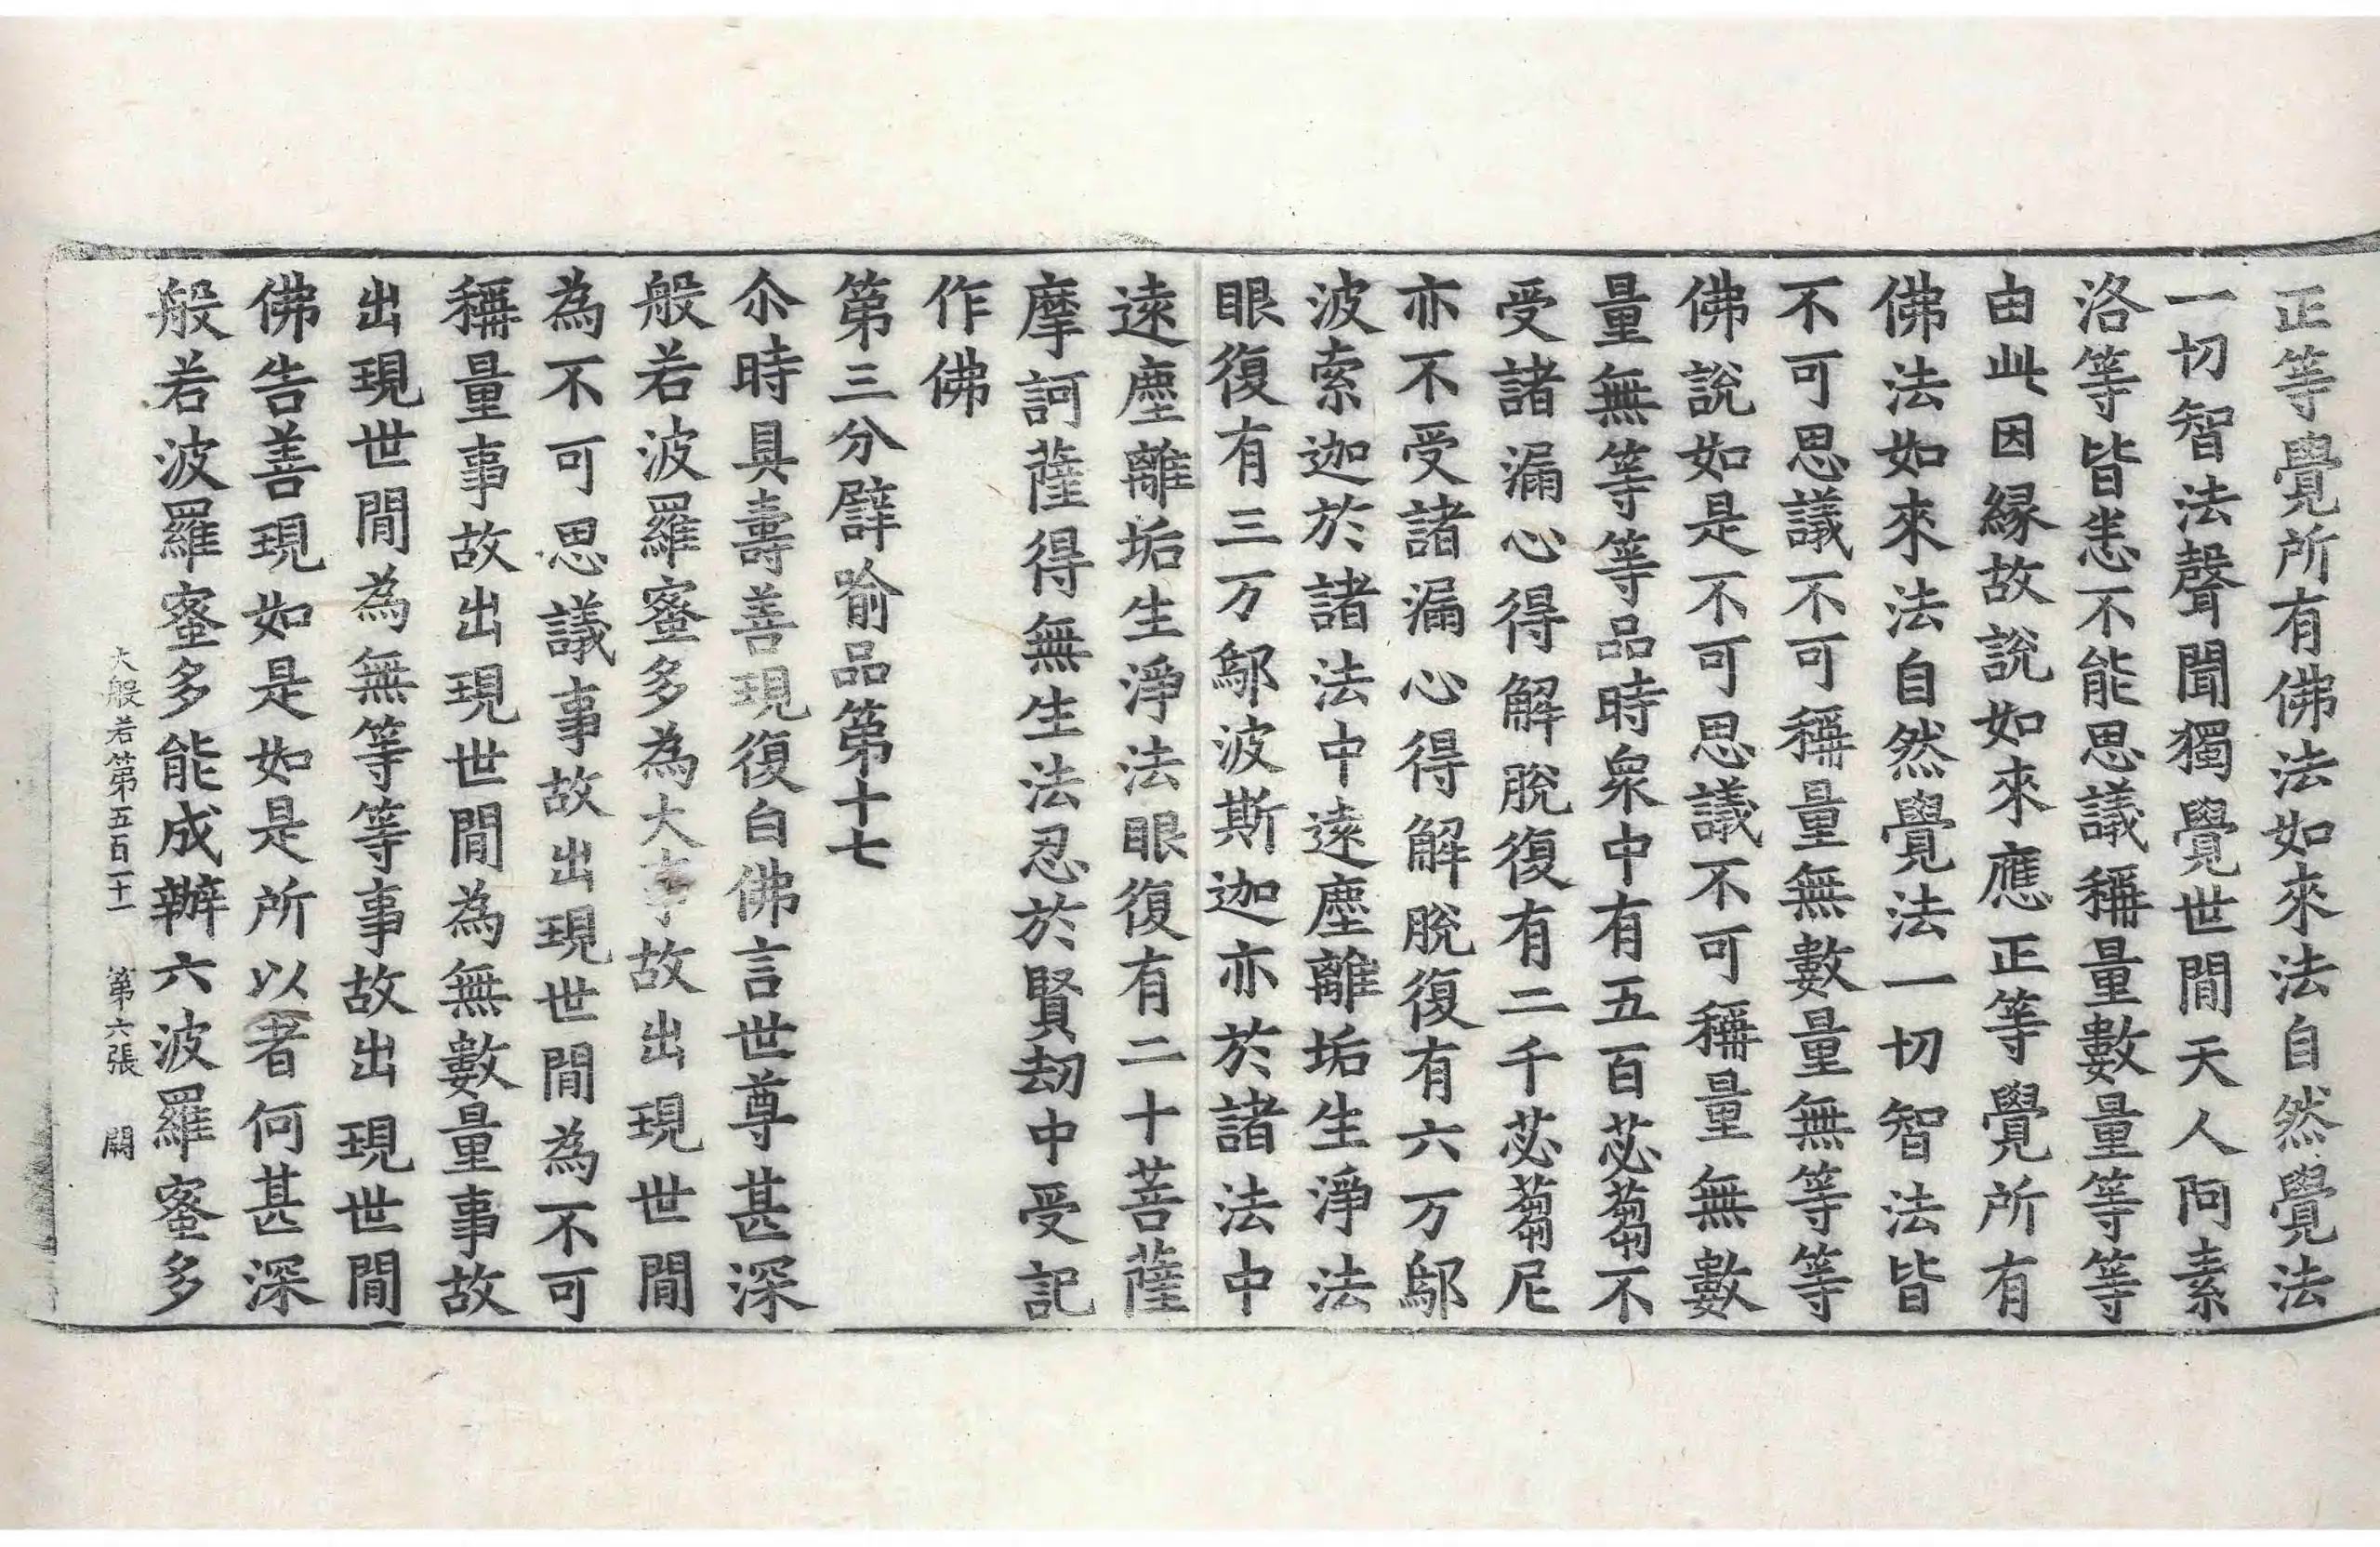 正等覺所有佛法如來法自然覺法
一切智法聲聞獨覺世間天人阿素
洛等皆悉不能思議稱量數量等等
由此因緣故說如來應正等覺所有
佛法如來法自然覺法一切智法皆
不可思議不可稱量無數量無等等
佛說如是不可思議不可稱量無數
量無等等品時衆中有五百苾蒭不
受諸漏心得解脫復有二千苾蒭尼
亦不受諸漏心得解脫復有六万鄔
波索迦於諸法中遠塵離垢生淨法
眼復有三万鄔波斯迦亦於諸法中
遠塵離垢生淨法眼復有二十菩薩
摩訶薩得無生法忍於賢劫中受記
作佛
第三分譬喻品第十七
尒時具壽善現復白佛言世尊甚深
般若波羅蜜多為大事故出現世間
為不可思議事故出現世間為不可
稱量事故出現世間為無數量事故
出現世間為無等等事故出現世間
佛告善現如是如是所以者何甚深
般若波羅蜜多能成辦六波羅蜜多
大般若第五百一十一 第六張 闕